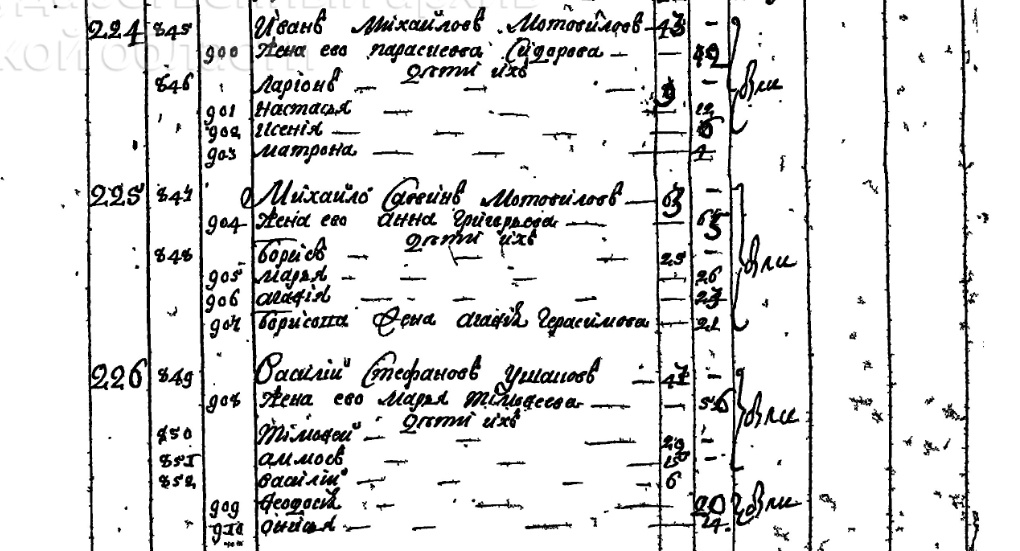 ударственный архив
кой области
224 845 Иванъ Михайловъ Мотовиловъ 43 –
900 Жена ево Парасковья Сидорова – 42
Дѣти ихъ
846 Ларіонъ 9 – были
901 Настасья – 12
902 Ксенія – 6
903 Матрона – 1
225 847 Михайло Саввинъ Мотовиловъ 63 –
904 Жена ево Анна Григорьева – 63
Дѣти ихъ
848 Борисъ 25 – были
905 Марья – 26
906 Агафія – 23
907 Борисова жена Агафія Герасимова – 21
226 849 Василій Стефановъ Ушаковъ 47 –
908 Жена ево Марья Тімофеева – 56 были
Дѣти ихъ
850 Тімофей 20 –
851 Аммосъ 15 –
852 Василій 6
909 Ѳеодосія – 20 были
910 – 24